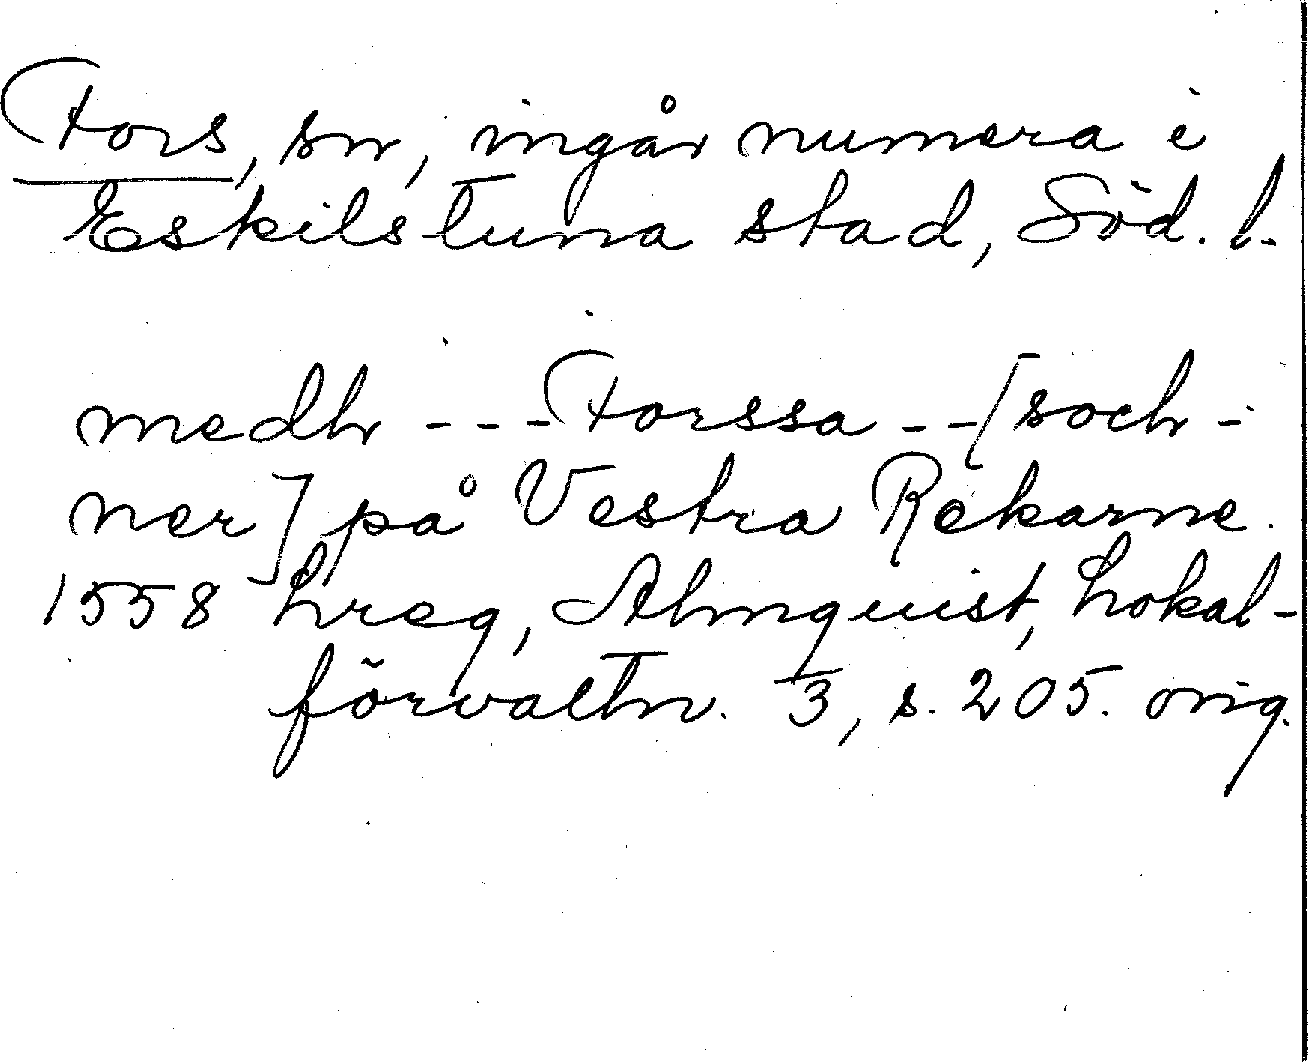 Fors, sn, ingår numera i
Eskilstuna stad, Söd. l.
medh --- Forssa -- [soch-
ner] på Vestra Rekarne.
1558 Lreg, Almquist, Lokal-
förvaltn. 3, s. 205. orig.